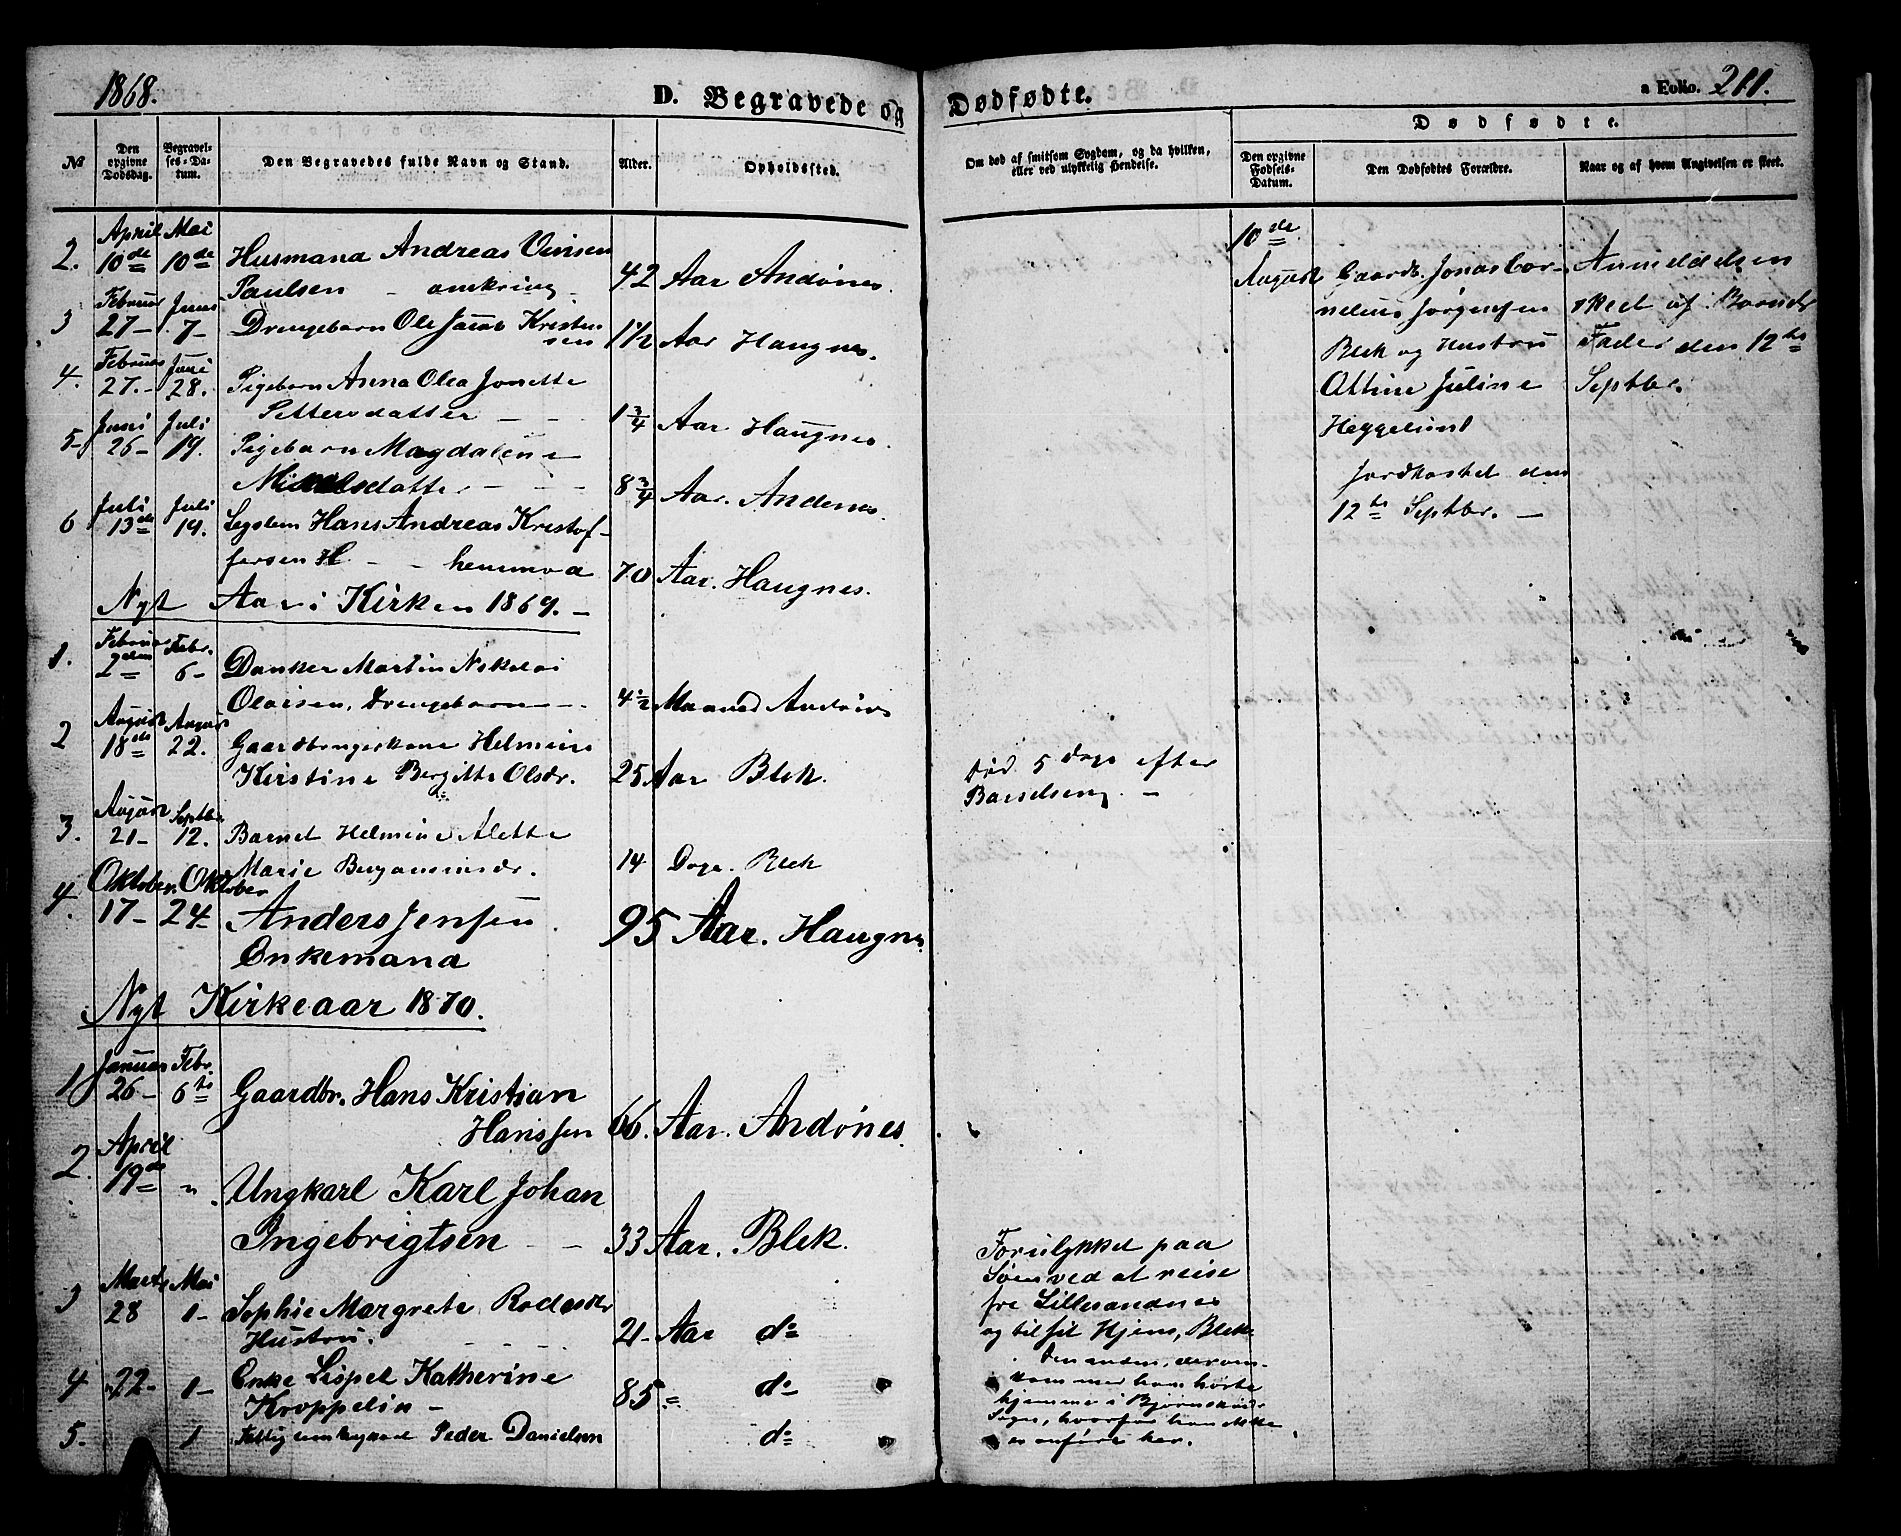 1868.
D. Begravede og
Dødfødte.
a Folio. 211.
Dødfødte.
№
Den opgivne Dødsdag.
Begravelses-Datum.
Den Begravedes fulde Navn og Stand.
Alder.
Opholdssted.
Om død af smitsom Sygdom, og da hvilken,
eller ved ulykkelig Hendelse.
Den opgivne Fødsels-Datum.
Den Dødfødtes Forældre.
Naar og af hvem Angivelsen er skeet.
2. April 10de Mai 10de Husmand Andreas
Paulsen - omkring 42 Aar Andønes.
3 Februar 27- Juni 7- Drengebarn Ole Jacob Kristen
sen 1 1/2 Aar Haugnes.
4. Februar 27.- Juni 28. Pigebarn Anna Olea Jonette
Pettersdatter - - 1 3/4 Aar Haugnes.
5- Juni 26- Juli 19. Pigebarn Magdalene
Mikkelsdatter - - - 8 3/4 Aar. Andenes.
6 Juli 13de Juli 19. Hans Andreas Kristof-
fersen H - - henimod 70 Aar. Haugnes.
Nyt Aar i Kirken 1869. -
1. Februar 2- Febr. 6- Danker Martin Nikolai
Olaisen, Drengebarn - 4 1/2 Maaned Andønes
2 August 18de August 22. Gaardbrugerkone Helmine
Kirstine Bergitte Olsdr. 25 Aar Blek.
Død 5 Dage efter
Barselseng. -
3. August 21- Septbr 12. Barnet Helmine Alette
Marie Benjaminsdr. 14 Dage. Blek
4. Oktober 17- Oktober 24- Anders Jensen
Enkemand 95 Aar. Haugnes
Nyt Kirkeaar 1870.
1 Januar 26- Febr. 6te Gaardbr. Hans Kristian
Hanssen 66. Aar. Andønes.
2. April 19de " Ungkarl Karl Johan
Ingebrigtsen - - 33 Aar. Blek.
3 Marts 28 Mai 1- Sophie Margrete Rodesdr
Hustru. 21- Aar do
4 "22- 1- Enke Lispet Katherine
Kroppelin - 85 = do
5. 1 Peder Danielsen do
Forulykket paa
Søen ved at reise
fra Lillesandnes
og til sit Hjem, Blek.
Den anden, der om-
kom med ham hørte
hjemme i Bjørnskinds
Sogn, hvorfor han ikke
er anført her.
10de August
Gaardb. Jonas Cor-
nelius Jørgensen
Blek og Hustru
Attine Juline
Heggelund
Jordkastet den
12te Septbr. -
Anmeldelsen
skeet af Barnets
Fader den 12te
Septbr.